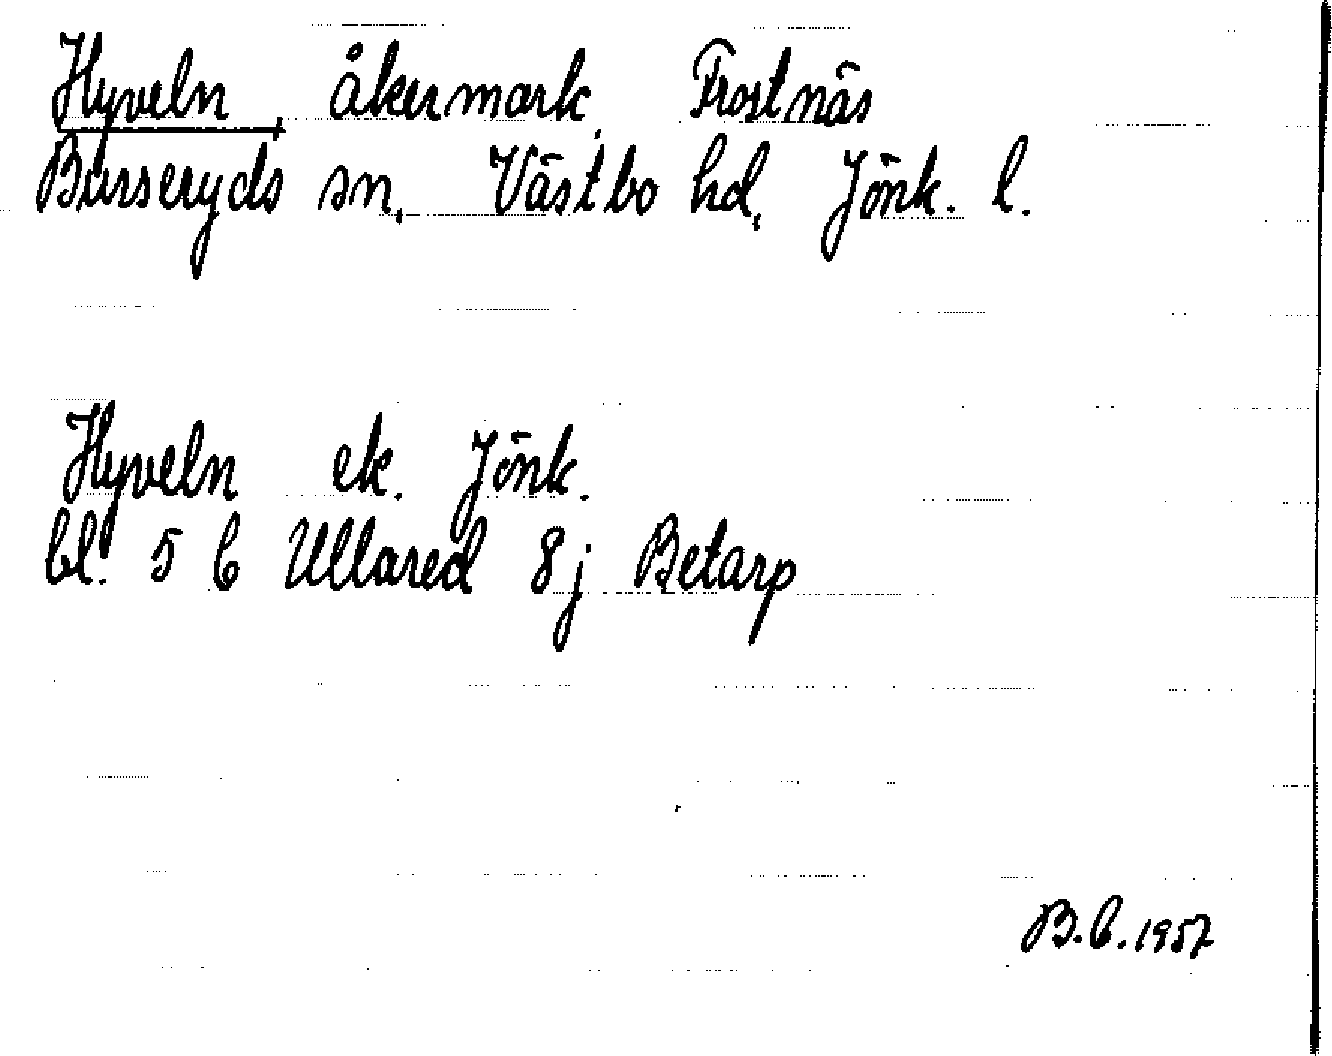 Hyveln, åkermark, Frostnäs
Burseryds sn, Västbo hd, Jönk. l.
Hyveln ek. Jönk.
bl. 5 C Ullared 8j Betarp
B.C. 1957